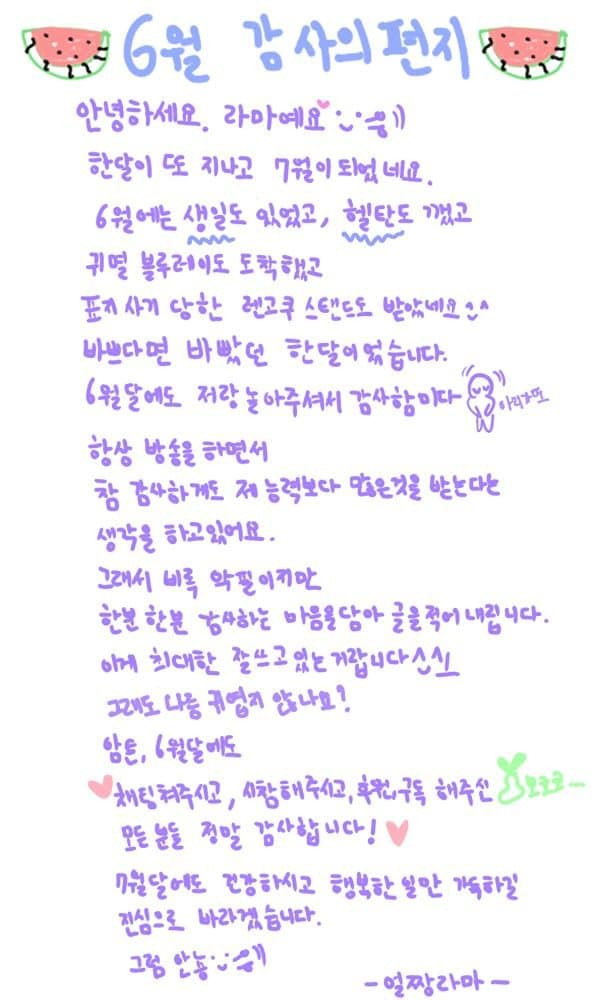 6월 감사의 편지
안녕하세요. 라마예요
한달이 또 지나고 7월이 되었네요.
6월에는 생일도 있었고, 헬탄도 깼고
귀멸 블루레이도 도착했고
표지 사기 당한 렌고쿠 스탠드도 받았네요^^
바쁘다면 바빴던 한달이었습니다.
6월달에도 저랑 놀아주셔서 감사함미다
아리가또
항상 방송을 하면서
참 감사하게도 제 능력보다 많은것을 받는다는
생각을 하고있어요.
그래서 비록 악필이지만
한분 한분 감사하는 마음을담아 글을적어 내립니다.
이게 최대한 잘쓰고 있는거랍니다^^
그래도 나름 귀엽지 않나요?
암튼, 6월달에도
채팅쳐주시고, 시참해주시고, 후원, 구독 해주신 모코코
모든 분들 정말 감사합니다!
7월달에도 건강하시고 행복한 일만 가득하길
진심으로 바라겠습니다.
그럼 안뇽
-얼짱라마-